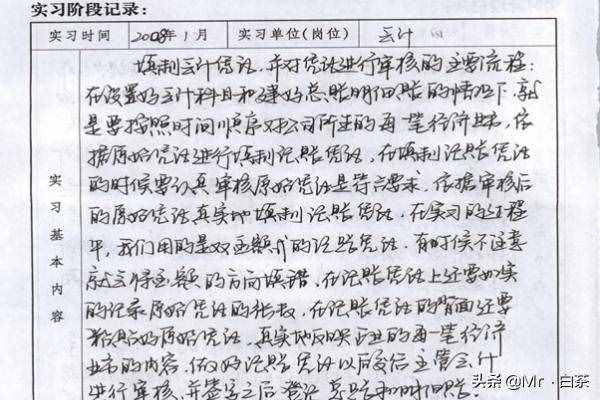 实习阶段记录：
实习时间 2008年1月 实习单位(岗位) 会计
填制会计凭证，并对凭证进行审核的主要流程：
在设置好会计科目和建好总账明细账的情况下，就
是要按照时间顺序对公司所发生的每一笔经济业务，依
据原始凭证进行填制记账凭证，在填制记账凭证
的时候要认真审核原始凭证是否符合要求，依据审核后
的原始凭证真实地填制记账凭证，在实习的过程
中，我们用的是双金额式的记账凭证，有时候不注意
就会将金额的方向填错，在记账凭证上还要如实
的记录原始凭证的张数，在记账凭证的背面还要
粘贴好原始凭证，真实地反映企业的每一笔经济
业务的内容，做好的记账凭证以后交给主管会计
进行审核，并签字之后登记总账和明细账。
实习基本内容
头条 @Mr·白茶